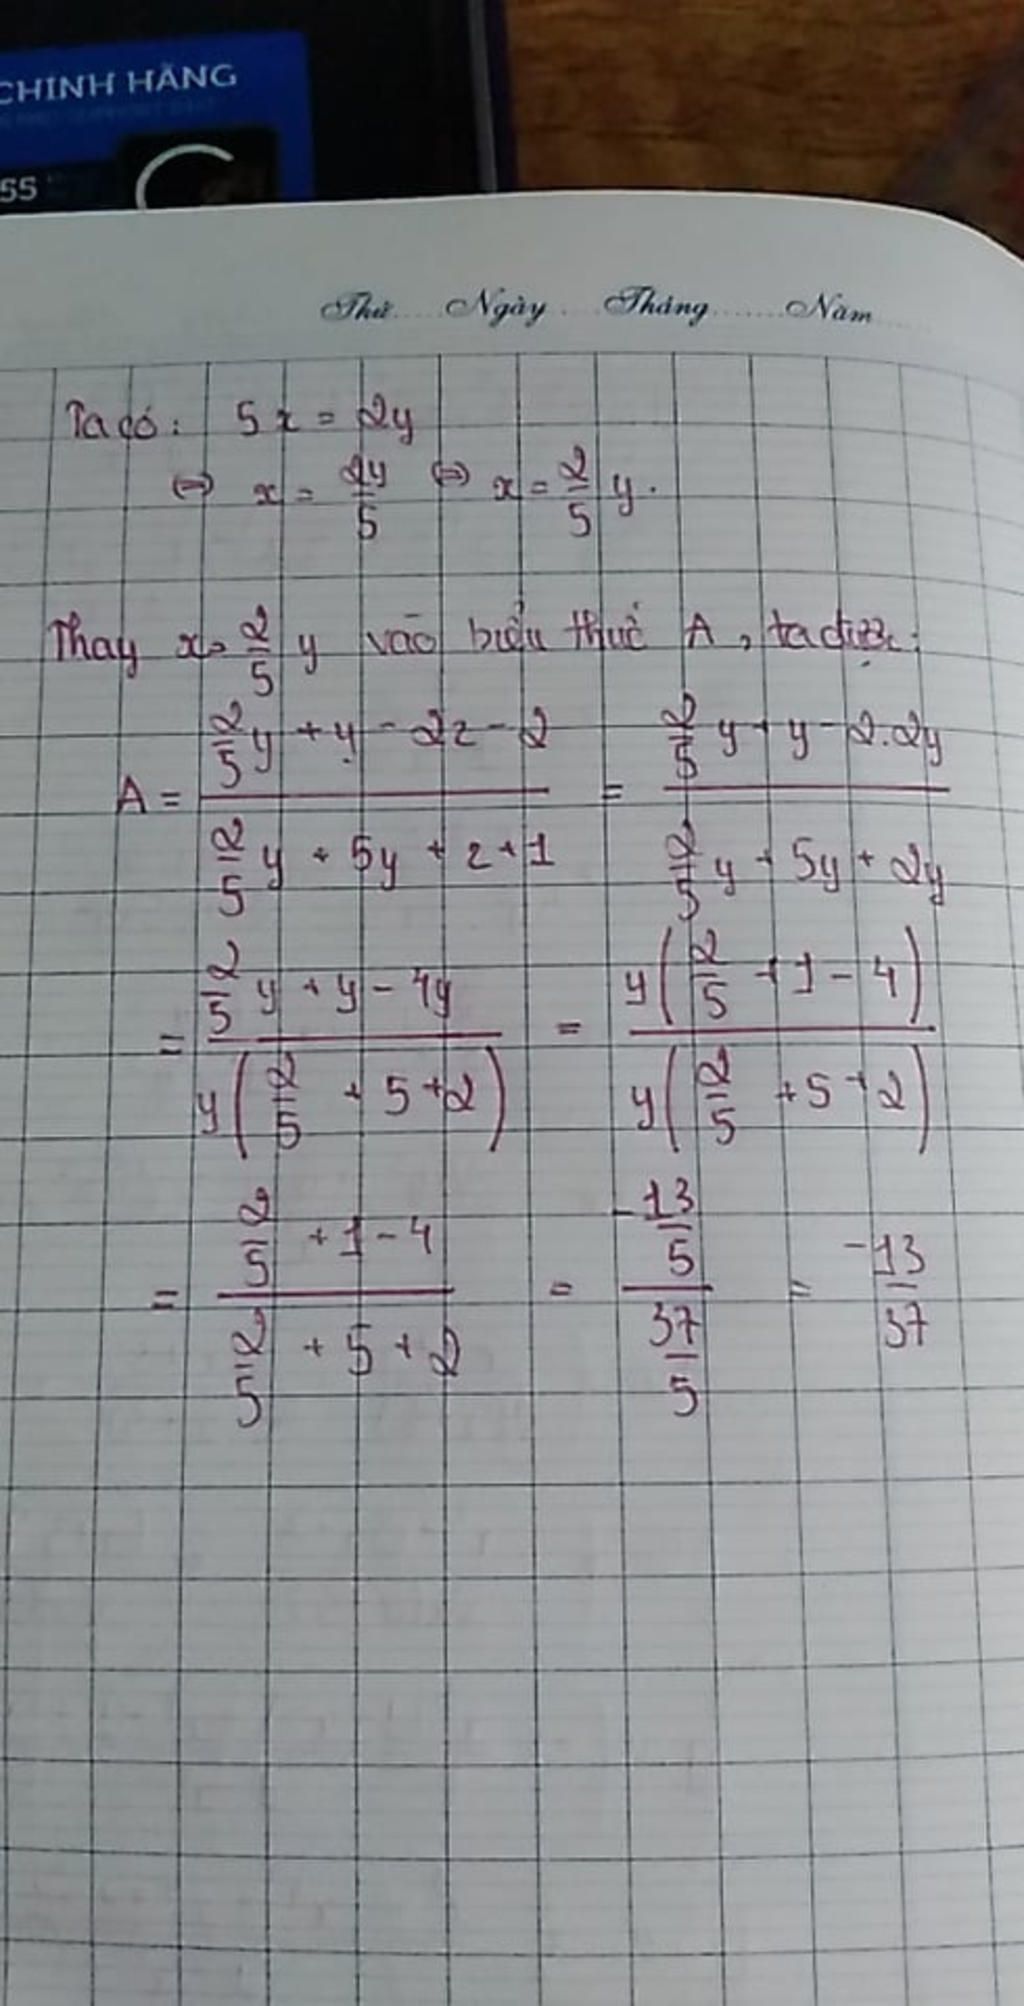 CHÍNH HÃNG
55
Thứ.....Ngày.....Tháng.......Năm......
Ta có: 5x = 2y
⇔ x = 2y/5 ⇔ x = 2/5 y.
Thay x = 2/5 y vào biểu thức A, ta được:
A = (2/5 y + y - 2z - 2)/(2/5 y + 5y + z + 1) = (2/5 y + y - 2.2y)/(2/5 y + 5y + 2y)
= (2/5 y + y - 4y)/(y(2/5 + 5 + 2)) = (y(2/5 + 1 - 4))/(y(2/5 + 5 + 2))
= (2/5 + 1 - 4)/(2/5 + 5 + 2) = (-13/5)/(37/5) = -13/37